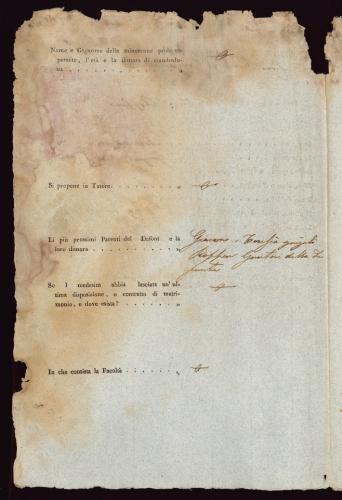 Nome e Cognome della minorenne prole su-
perstite, l'età e la dimora di ciascheduna
na . . . . . . . . . . . . „
Si propone in Tutore. . . . . . . . „
Li più prossimi Parenti del Defont. e la
loro dimora . . . . . . . . . . . „
Giacomo e
Genitori della
Se l medesim abbia lasciata un'ul-
tima disposizione, o contratto di matri-
monio, e dove esista? . . . . . . . „
In che consista la Facoltà . . . . . . „